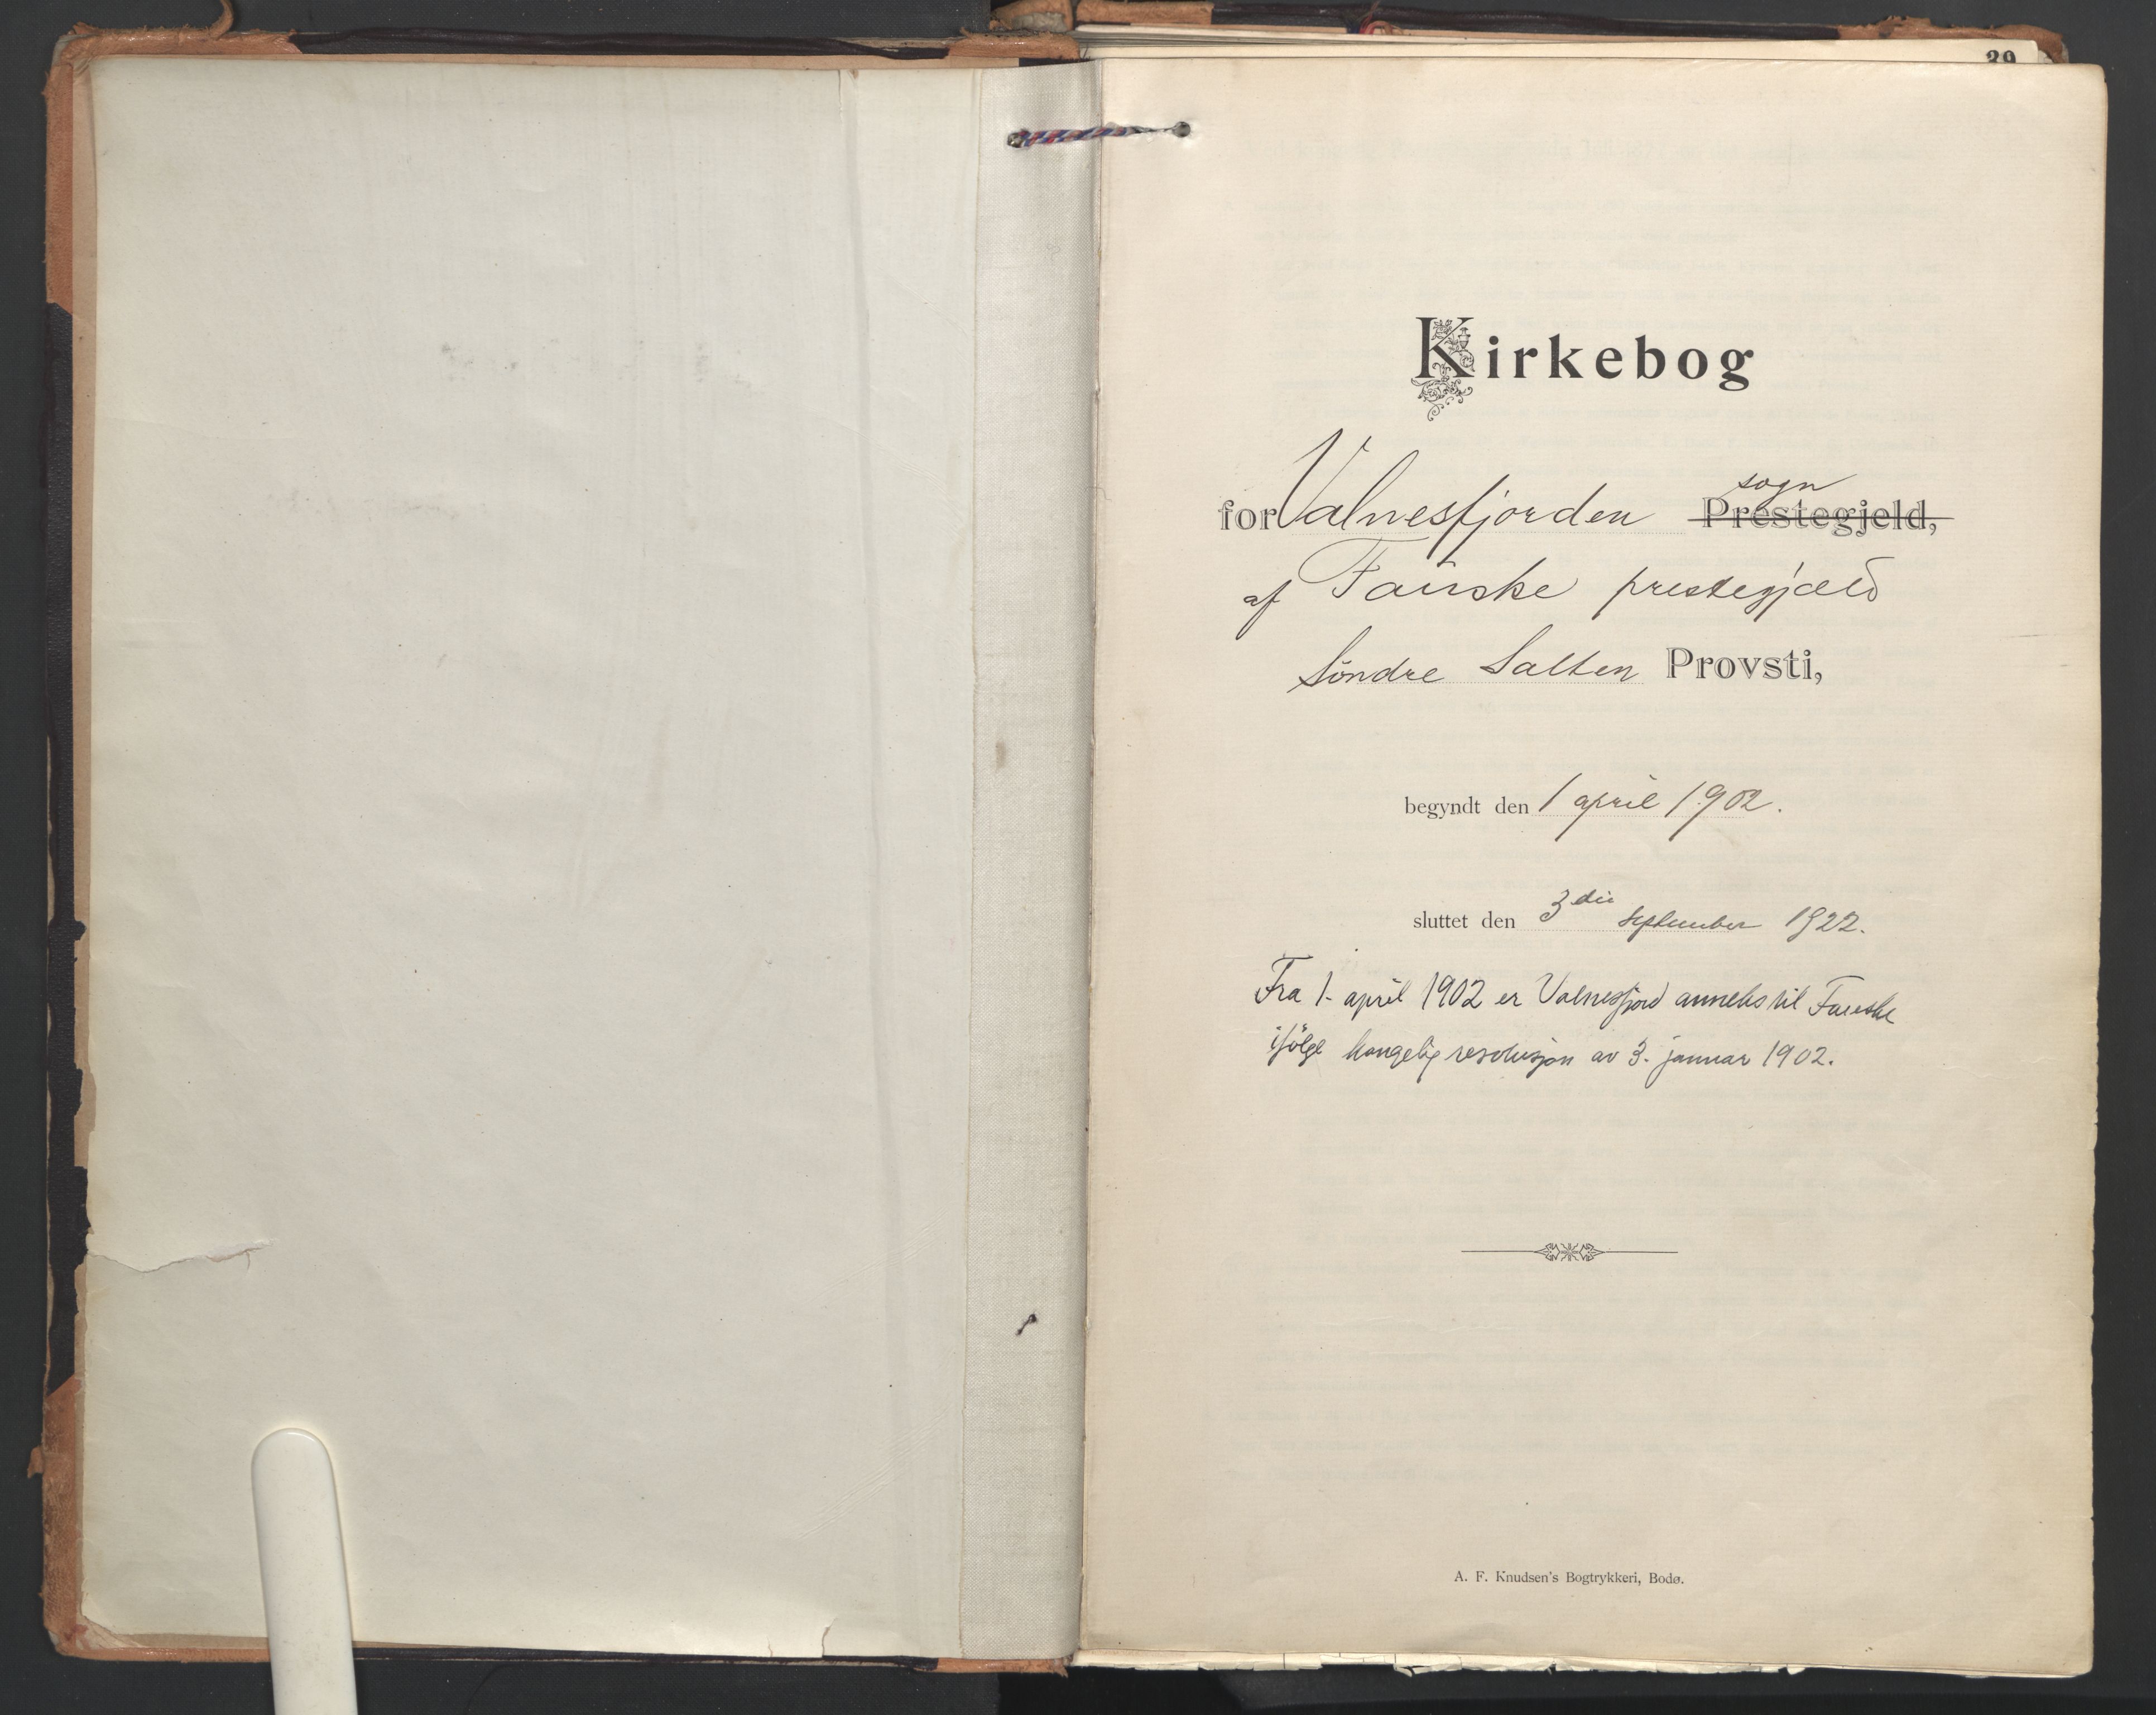 39
Kirkebog
for Valnesfjorden sogn Prestegjeld,
af Fauske prestegjæld
Söndre Salten Provsti,
begyndt den 1 april 1902.
sluttet den 3die september 1922.
Fra 1. april 1902 er Valnesfjord anneks til Fauske
ifölge kongelig resolusjon av 3. januar 1902.
A. F. Knudsen's Bogtrykkeri, Bodø.